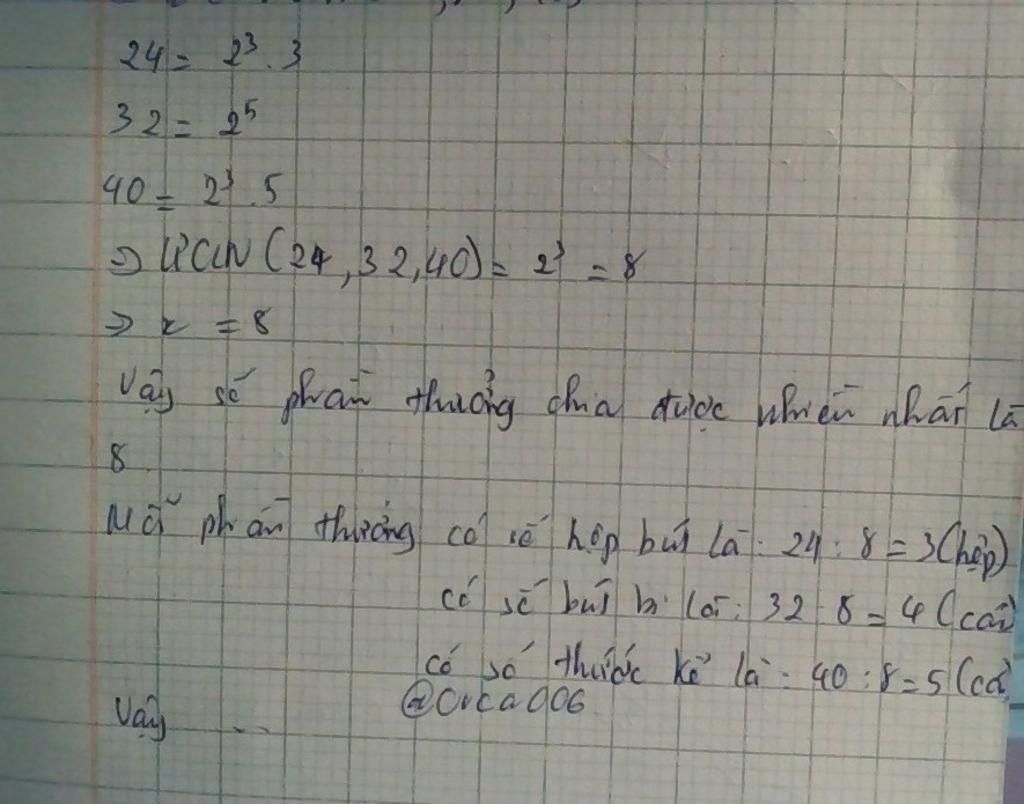 24 = 2³ . 3
32 = 2⁵
40 = 2³ . 5
⇒ ƯCLN (24, 32, 40) = 2³ = 8
⇒ x = 8
Vậy số phần thưởng chia được nhiều nhất là
8
Mỗi phần thưởng có số hộp bút là : 24 : 8 = 3 (hộp)
có số bút bi là : 32 : 8 = 4 (cái)
có số thước kẻ là : 40 : 8 = 5 (cái
@Orca006
Vậy ...